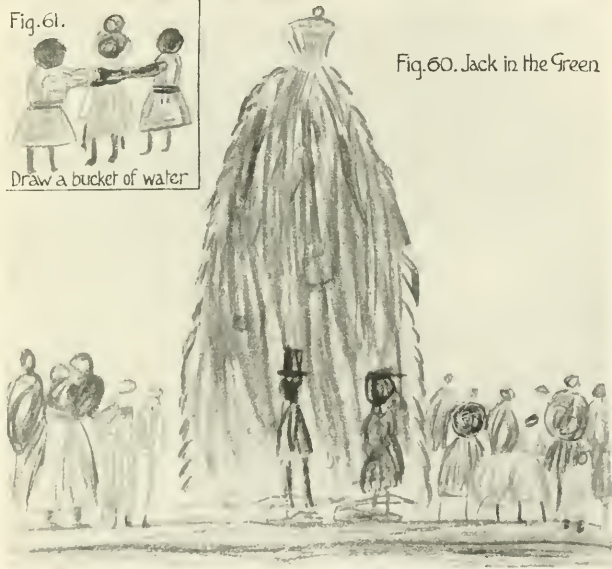 Fig.61.
Draw a bucket of water
Fig.60. Jack in the Green